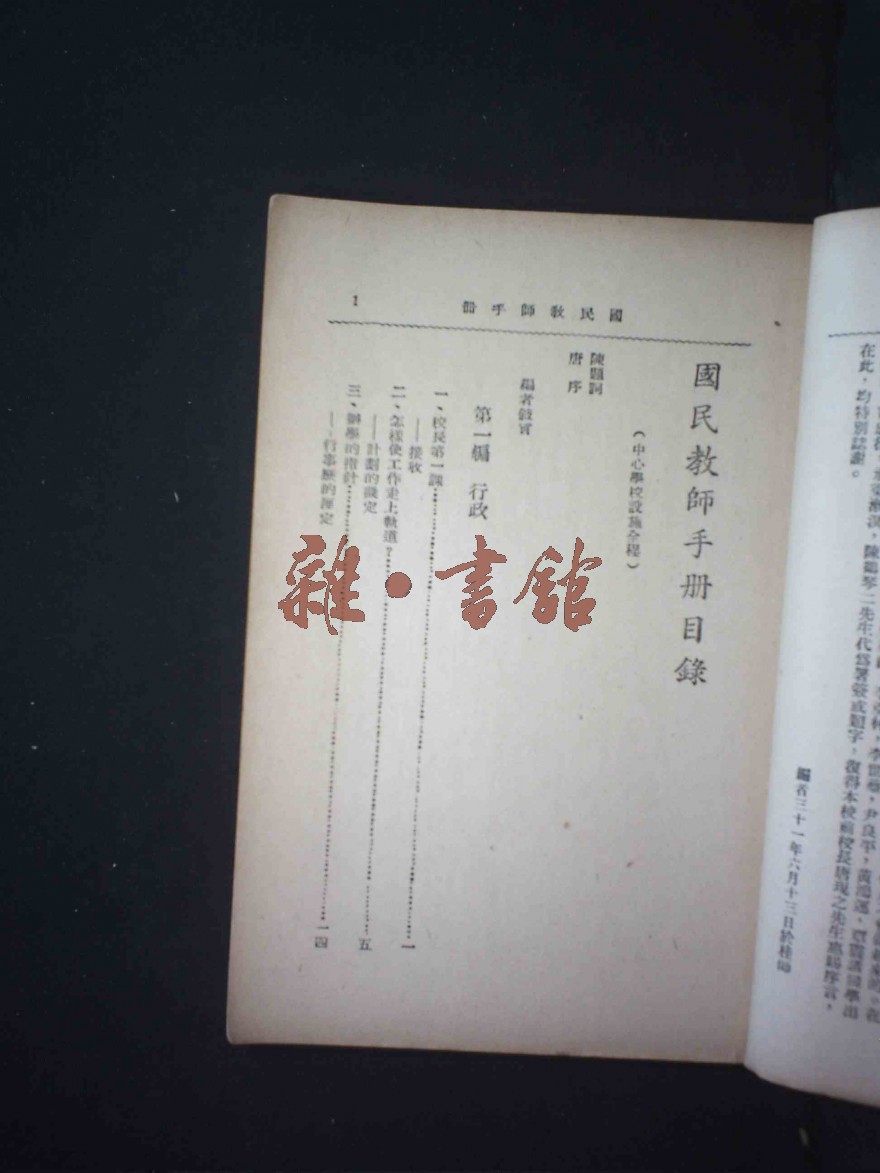 在此，均特別誌謝。
陳鶴琴二先生代為署簽或題字，復得本校前校長唐現之先生惠賜序言，
編者三十一年六月十三日於桂師
1 國民教師手冊
國民教師手册目錄
（中心學校設施全程）
陳題詞
唐序
編者餘言
第一編 行政
一、校長第一課 一
——接收
二、怎樣使工作走上軌道？ 五
——計劃的擬定
三、辦學的指針 一四
——行事曆的擬定
雜·書館